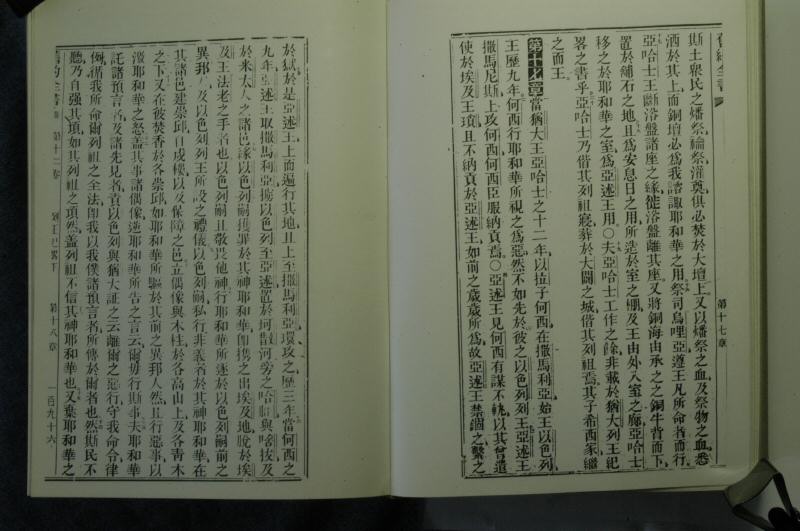 舊約全書
第十七章
斯土衆民之燔祭、禴祭、灌奠、俱必焚於大壇上、又以燔祭之血、及祭物之血、悉
洒於其上、而銅壇必為我諮諏耶和華之用、祭司烏哩亞遵王凡所命者而行、
亞哈士王斷浴盤諸座之緣、徙浴盤離其座、又將銅海由承之之銅牛背而下、
置於鋪石之地、且為安息日之用、所造於室之棚、及王由外入室之廊、亞哈士
移之於耶和華之室、為亞述王用○夫亞哈士工作之餘、非載於猶大列王紀
畧之書乎、亞哈士乃偕其列祖寢、葬於大闢之城、偕其列祖焉、其子希西家繼
之而王、
第十七章 當猶大王亞哈士之十二年、以拉子何西在撒馬利亞、始王以色列
王歷九年、何西行耶和華所視之為惡、然不如先於彼之以色列列王、亞述王
撒馬尼斯上攻何西、何西臣服納貢焉○亞述王見何西有謀不軌、以其曾遣
使於埃及王瑣、且不納貢於亞述王、如前之歲歲所為、故亞述王禁錮之、繫之
於獄、於是亞述王上、而遍行其地、且上至撒馬利亞、環攻之、歷三年、當何西之
九年、亞述王取撒馬利亞、擄以色列至亞述、置於河散河旁之哈臘與哈拔、及
於米太人之諸邑、緣以色列獲罪於其神耶和華、即攜之出埃及地、脫於埃
及王法老之手者也、以色列嗣且敬畏他神、行耶和華所逐於以色列嗣前之
異邦、及以色列列王所設之禮儀、以色列嗣私行非義者於其神耶和華、在
其諸邑建崇邱、自戍樓以及保障之邑、立偶像與木柱、於各高山上、及各青木
之下、又在彼焚香於各崇邱、如耶和華所驅於其前之異邦人然、且行惡事、以
激耶和華之怒、蓋其事諸偶像、違耶和華所告之言云、爾毋行斯事、夫耶和華
託諸預言者、及諸先見者、責以色列與猶大証之云、離爾之惡行、守我命令律
例、循我所命爾列祖之全法、即我以我僕諸預言者、所傳於爾者也、然斯民不
聽、乃自强其項、如其列祖之項然、蓋列祖不信其神耶和華也、又棄耶和華之
舊約全書 第十二卷 列王紀畧下 第十八章 一百九十六